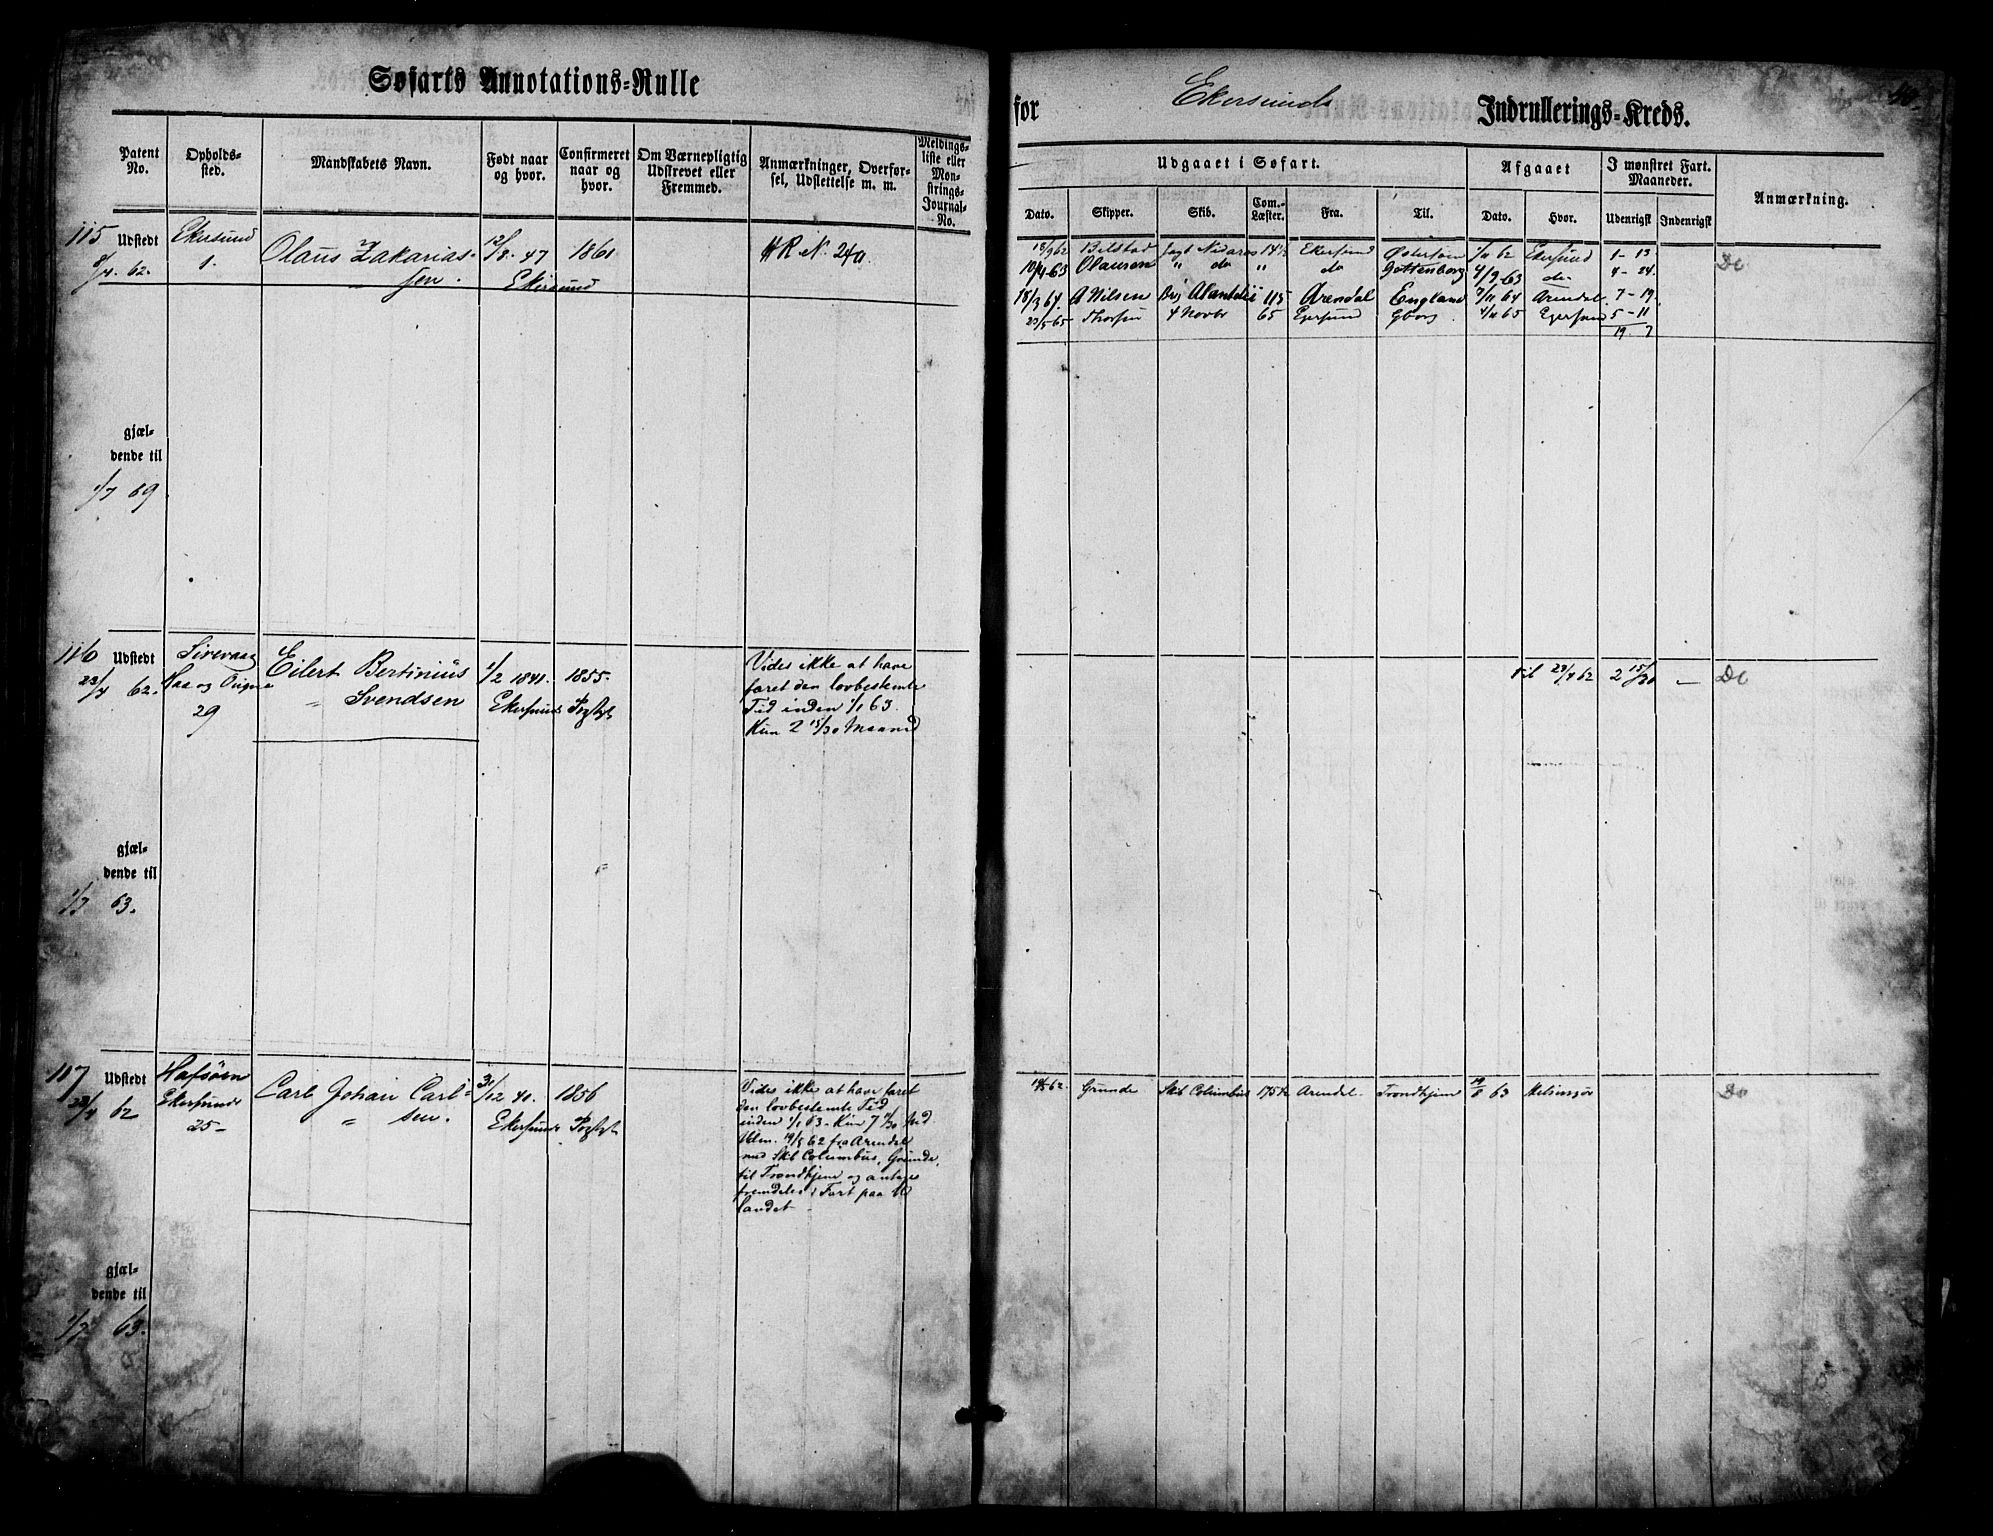 Søfarts Annotations-Rulle
for Ekersunds Indrullerings-Kreds.
Patent No.
Opholds-sted.
Mandskabets Navn.
Født naar og hvor.
Confirmeret naar og hvor.
Om Værnepligtig Udskrevet eller Fremmed.
Anmærkninger, Overførsel, Udslettelse m. m.
Meldingsliste eller Mønstrings-Journal-No.
Udgaaet i Søfart.
Afgaaet
I mønstret Fart. Maaneder.
Anmærkning.
Dato. Skipper. Skib. Com.-Læster. Fra. Til. Dato. Hvor. Udenrigsk Indenrigsk
115
Udstedt
8/4. 62.
Ekersund
1.
Olaus Zakarias-
sen.
12/8. 47
Ekersund
1861
HR No. 240.
18/9 62 Bilstad Jagt Nidaros 14½ Ekersund 1/11 62 Ekersund 1 - 13
10/4-63 Olausen " do " do Gottenborg 4/9-63 do 4 - 24
18/3 64. A Nilsen Brig 115 Arendal England 7/11 64 Arendal. 7 - 19
23/5-65 4 Novbr 65 Egersund Gborg 4/11 65 Egersund 5 - 11
19. 7
Do
gjæl-
dende til
1/7 69
116
Udstedt
23/4 62.
Sirevaag
Haa og Ougne
29
Eilert Bertinius
" Svendsen
1/2 1841.
Ekersund
1855.
Vides ikke at have
faret den lovbestemte
Tid inden 1/1 63.
Kun 2 15/30 Maaned
til 23/4 62 2 15/30 —
Do
gjæl-
dende til
1/7 63.
117
Udstedt
23/4 62
Hafsøen
Ekersunds
25-
Carl Johan Carl-
" sen.
31/12 40.
Ekersunds
1856
Vides ikke at have faret
den lovbestemte Tid
inden 1/1 63. Kun 7
19/5 62 fra Arendal
med Skb Columbus, Grunde,
til Trondhjem og antages
fremdeles i Fart paa Ud
landet -
19/5-62. Grunde Skb Columbus 175½ Arendal. Trondhjem 19/8 63 Helsingør
Do
gjæl-
dende til
1/7 63.